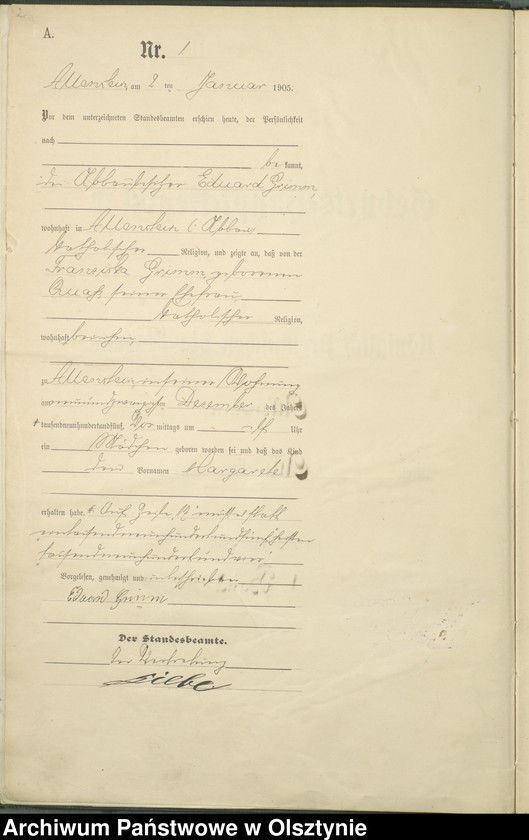 2
A.
Nr. 1
Allenstein am 2 ten Januar 1905.
Vor dem unterzeichneten Standesbeamten erschien heute, der Persönlichkeit
nach
be kannt,
der Abbaubesitzer Eduard Grimm,
wohnhaft in Allenstein Abbau
katholischer Religion, und zeigte an, daß von der
Franziska Grimm, geborenen
seiner Ehefrau
katholischer Religion,
wohnhaft bei ihm,
zu Allenstein in seiner Wohnung
am neunundzwanzigsten Dezember des Jahres
tausendneunhundertundfünf, Vor mittags um elf Uhr
ein Mädchen geboren worden sei und daß das Kind
den Vornamen Margarete
erhalten habe. Auf Zeile muß es statt
eintausendneunhundertundfünf heißen
tausendneunhundertundvier
Vorgelesen, genehmigt und unterschrieben
Eduard Grimm
Der Standesbeamte.
In Vertretung
Archiwum Państwowe w Olsztynie